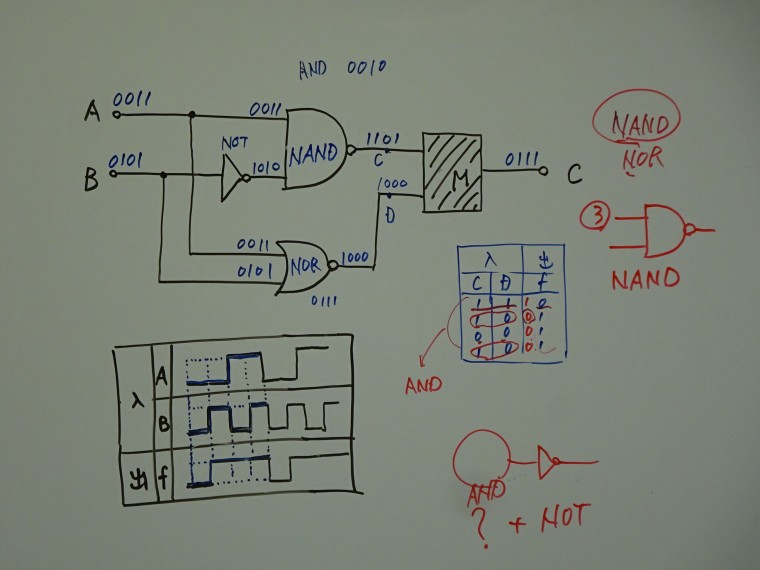 AND 0010
A 0011 0011 NAND 1101 C
NOT
B 0101 1010 1000 D M 0111 C
0011
0101 NOR 1000
0111
NAND
NOR
③
NAND
入 出
C D f
1 1 1 0
1 0 0 1
0 0 0 1
1 0 0 1
AND
入 A
B
出 f
AND
? + NOT